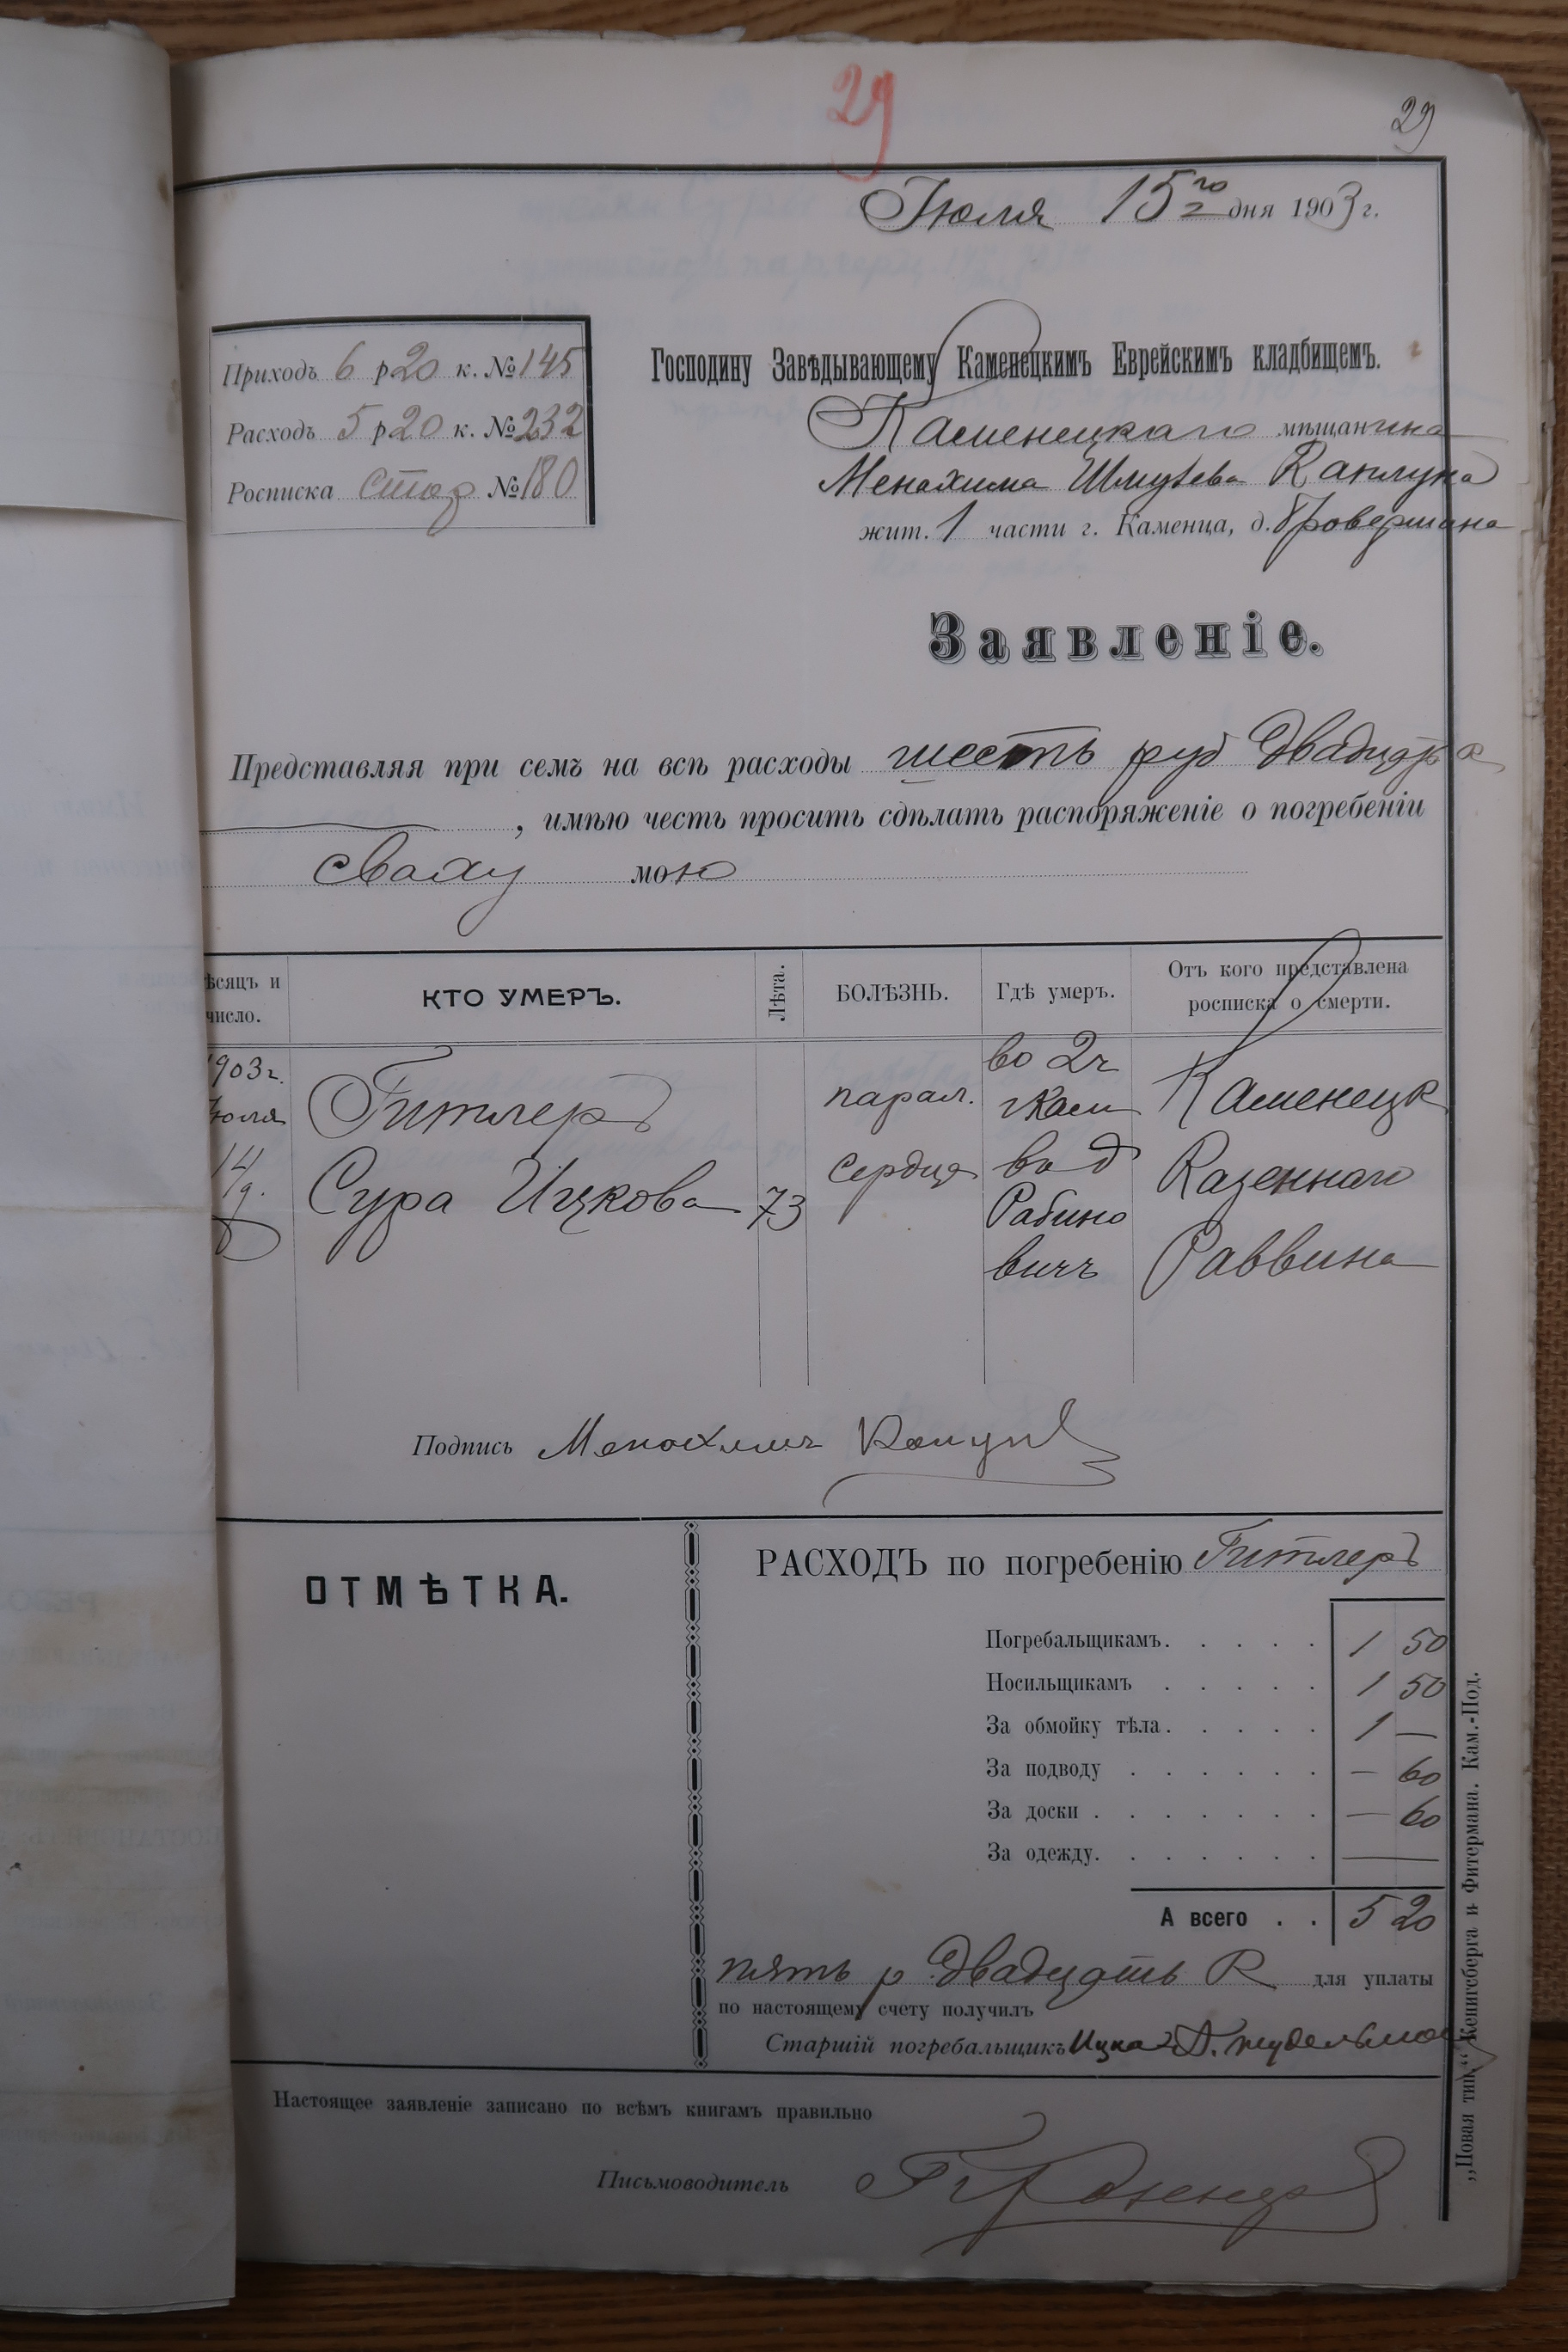 29
29
Іюля 15го дня 1903 г.
Приходъ 6 р 20 к. № 145
Расходъ 5 р 20 к. № 232
Росписка стар № 180
Господину Завѣдывающему Каменецкимъ Еврейскимъ кладбищемъ.
Каменецкаго мѣщанина
Менахима Шмулева Каплуна
жит. 1 части г. Каменца, д.
Заявленіе.
Представляя при семъ на всѣ расходы шесть руб двадца к
, имѣю честь просить сдѣлать распоряженіе о погребеніи
сваху мою
ѣсяцъ и число.
КТО УМЕРЪ.
Лѣта.
БОЛѢЗНЬ.
Гдѣ умеръ.
Отъ кого представлена росписка о смерти.
903 г.
Июля
14
Гитлеръ
Сура Ицкова
73
парал.
сердца
во 2 ч
г Кам
в д
Рабино
вичъ
Каменецк
Казеннаго
Раввина
Подпись Менахимъ Каплун
ОТМѢТКА.
РАСХОДЪ по погребенію Гитлеръ
Погребальщикамъ. 1 50
Носильщикамъ 1 50
За обмойку тѣла. 1 —
За подводу — 60
За доски — 60
За одежду. —
А всего 5 20
пять р двадцать к для уплаты
по настоящему счету получилъ
Старшій погребальщикъ Ицка
Настоящее заявленіе записано по всѣмъ книгамъ правильно
Письмоводитель
„Новая тип.“ Кенигсберга и Фитермана. Кам.-Под.